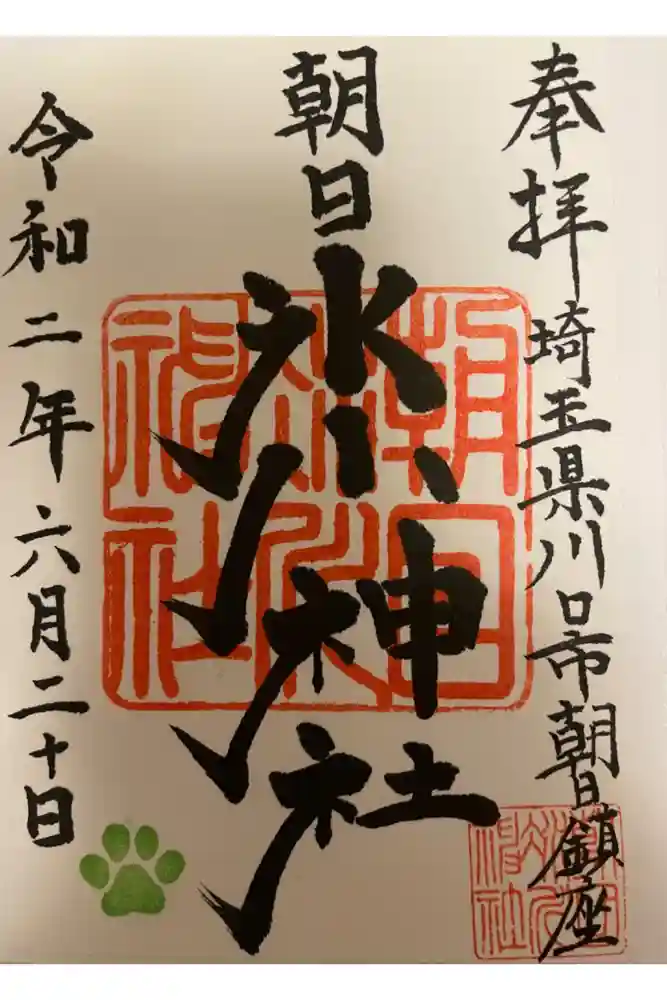 奉拝 埼玉県川口市朝日鎮座
朝日氷川神社
令和二年六月二十日
朝日氷川神社